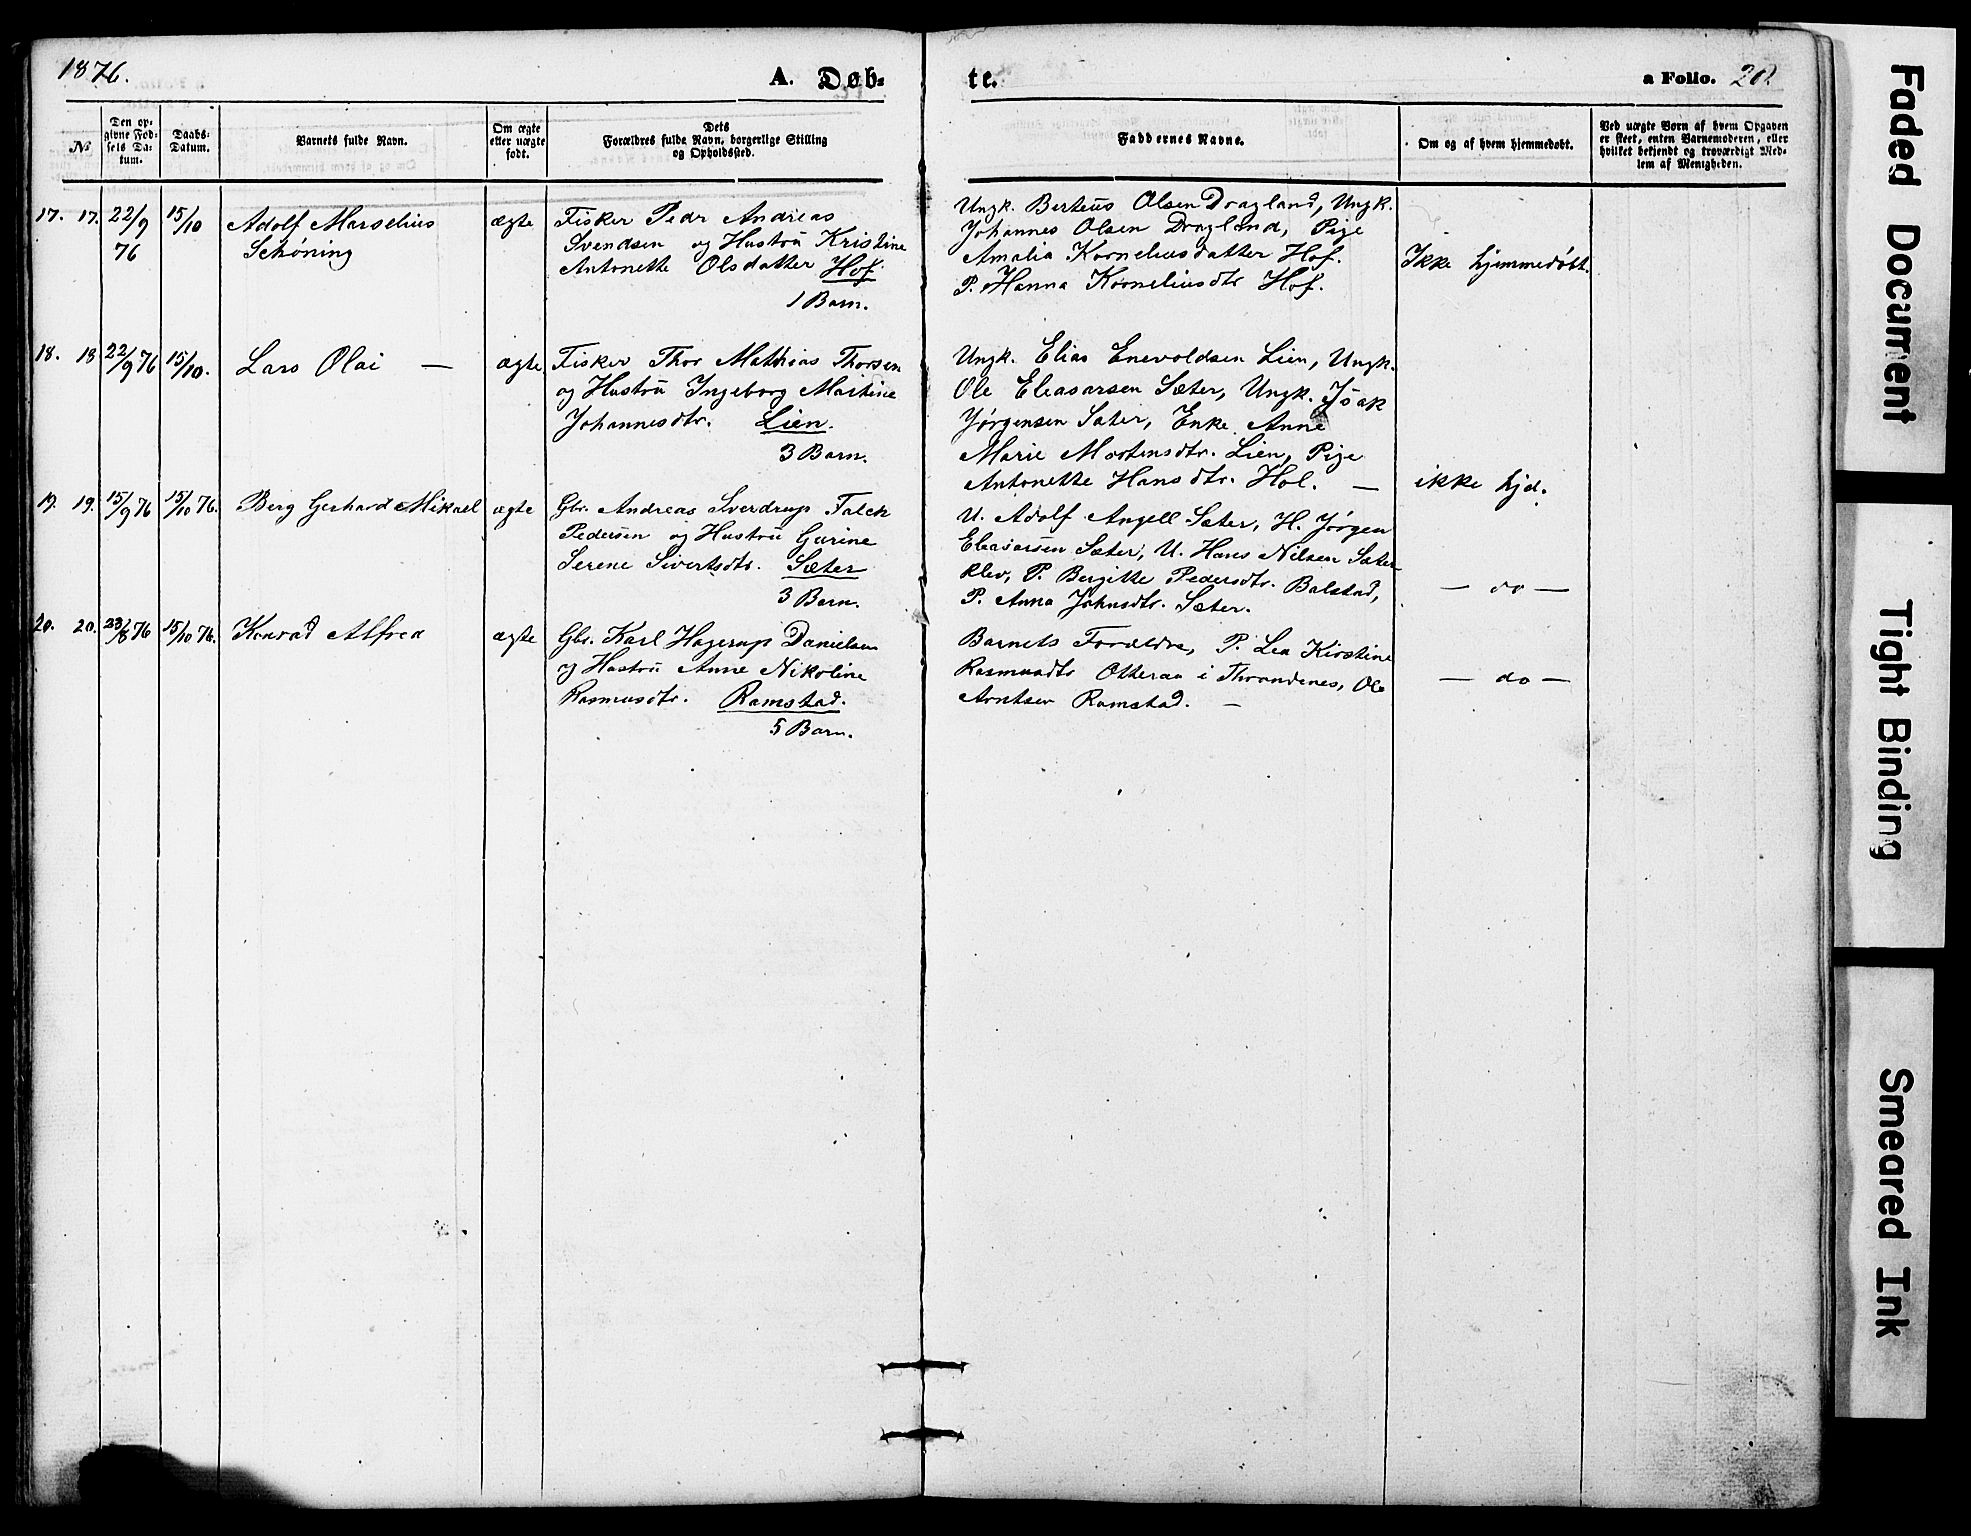 1876.
A. Døb-
te.
a Folio. 20.
No
Den op-
givne Fød-
sels Da-
tum.
Daabs-
Datum.
Barnets fulde Navn.
Om ægte
eller uægte
født.
Dets
Forældres fulde Navn, borgerlige Stilling
og Opholdssted.
Faddernes Navne.
Om og af hvem hjemmedøbt.
Ved uægte Børn af hvem Opgaven
er skeet, enten Barnemoderen, eller
hvilket bekjendt og troværdigt Med-
lem af Menigheden.
17. 17. 22/9 76
15/10
Adolf Marselius
Schøning
ægte
Fisker Pedr Andreas
Svendsen og Hustru Kristine
Antonette Olsdatter Hof.
1 Barn.
Ungk. Berteus Olsen Dragland, Ungk.
Johannes Olsen Dragland, Pige
Amalia Korneliusdatter Hof.
P. Hanna Korneliusdtr Hof.
Ikke hjemmedøbt.
18. 18 22/9 76
15/10.
Lars Olai —
ægte
Fisker Thor Mathias Thorsen
og Hustru Ingeborg Martine
Johannesdtr. Lien.
3 Barn.
Ungk. Elias Enevoldsen Lien, Ungk.
Ole Eleasarsen Sæter, Ungk. Isak
Jørgensen Sæter, Enke Anne
Marie Mortensdtr. Lien, Pige
Antonette Hansdtr. Hol. —
ikke hjd.
19. 19. 15/9 76
15/10 76.
Berg Gerhard Mikael
ægte
Gbr. Andreas Sverdrup Falch
Pedersen og Hustru Gurine
Serene Sivertsdtr. Sæter
3 Barn.
U. Adolf Angell Sæter, H. Jørgen
Eleasarsen Sæter, U. Hans Nilsen Sæter-
klev, P. Bergitte Pedersdtr. Balstad,
P. Anna Johnsdtr. Sæter.
— do —
20. 20. 23/8 76
15/10 76.
Konrad Alfred
ægte
Gbr. Karl Hagerup Danielsen
og Hustru Anne Nikoline
Rasmusdtr. Ramstad.
5 Barn.
Barnets Forældre, P. Lea Kirstine
Rasmusdtr Otteraa i Throndenes, Ole
Arntsen Ramstad. —
— do —
Faded Document
Tight Binding
Smeared Ink